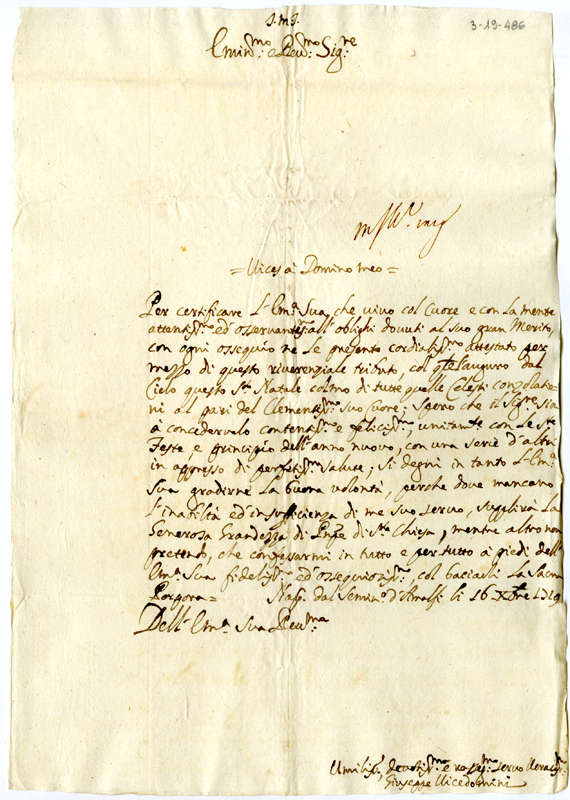 J.M.J.
3-19-486
Emin.mo e Rev.mo Sig.re
= Vices à Domino meo =
Per certificare L'Em.a Sua, che vivo col Cuore e con la mente
attentiss.mo ed osservantiss. all'oblighi dovuti al suo gran Merito,
con ogni ossequio ne Le presento cordialiss.mo attestato per
mezzo di questo riverenziale tributo, col q.le l'auguro dal
Cielo questo S.to Natale colmo di tutte quelle Celesti conzolatio-
ni al pari del Clementiss.mo suo Cuore; Spero che il Sig.re sia
à concedervelo contentiss.mo e feliciss.mo, unitante con le S.te
Feste, e principio dell'anno nuovo, con una serie d'altri
in appresso di perfetiss.ma salute; si degni in tanto L'Em.a
Sua gradirne La buona volontà, perche dove mancano
L'inabiltà ed insufficienza di me Suo servo, supplirà La
Generosa Grandezza di Pnpe di S.ta Chiesa, mentre altro non
pretendo, che confesarmi in tutto e per tutto à piedi dell'
Em.a Sua fideliss.mo ed ossequiosiss.mo, col baciarli La Sacra
Porpora = Nasp. dal Semin.o d'Amalfi li 16 Xbre 1719
Dell'Em.a Sua Rev.ma
Umiliss.o, devotiss.mo e servo
Giuseppe Vicedomini